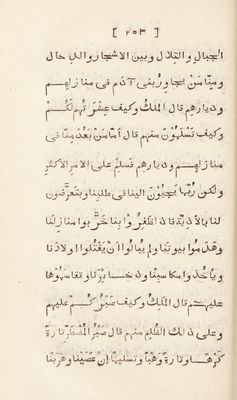 [ ٢٥٣ ]
الجبال والتلال وبين الاشجار والدحال
ومنّا من يجاور بنى آدم فى منازلهم
وديارهم قال الملك وكيف عشرتهم لكم
وكيف تسلمون منهم قال امّا من بعد منّا فى
منازلهم وديارهم تسلم على الامر الاكثر
ولكن ربّما يجيون الينا فى طلبنا ويتعرّضون
لنا بالاذيّة فاذا ظفروا بنا خرّبوا منازلنا
وهدموا بيوتنا ولم يبالوا ان يقتلوا اولادنا
وياخذوا مكاسبنا وذخايرنا ويتقاسموها
عليهم قال الملك وكيف صبركم عليهم
وعلى ذلك الظلم منهم قال صبر المضطرّ تارة
كرها وتارة رهبا وتسليما ان غضبنا وهربنا